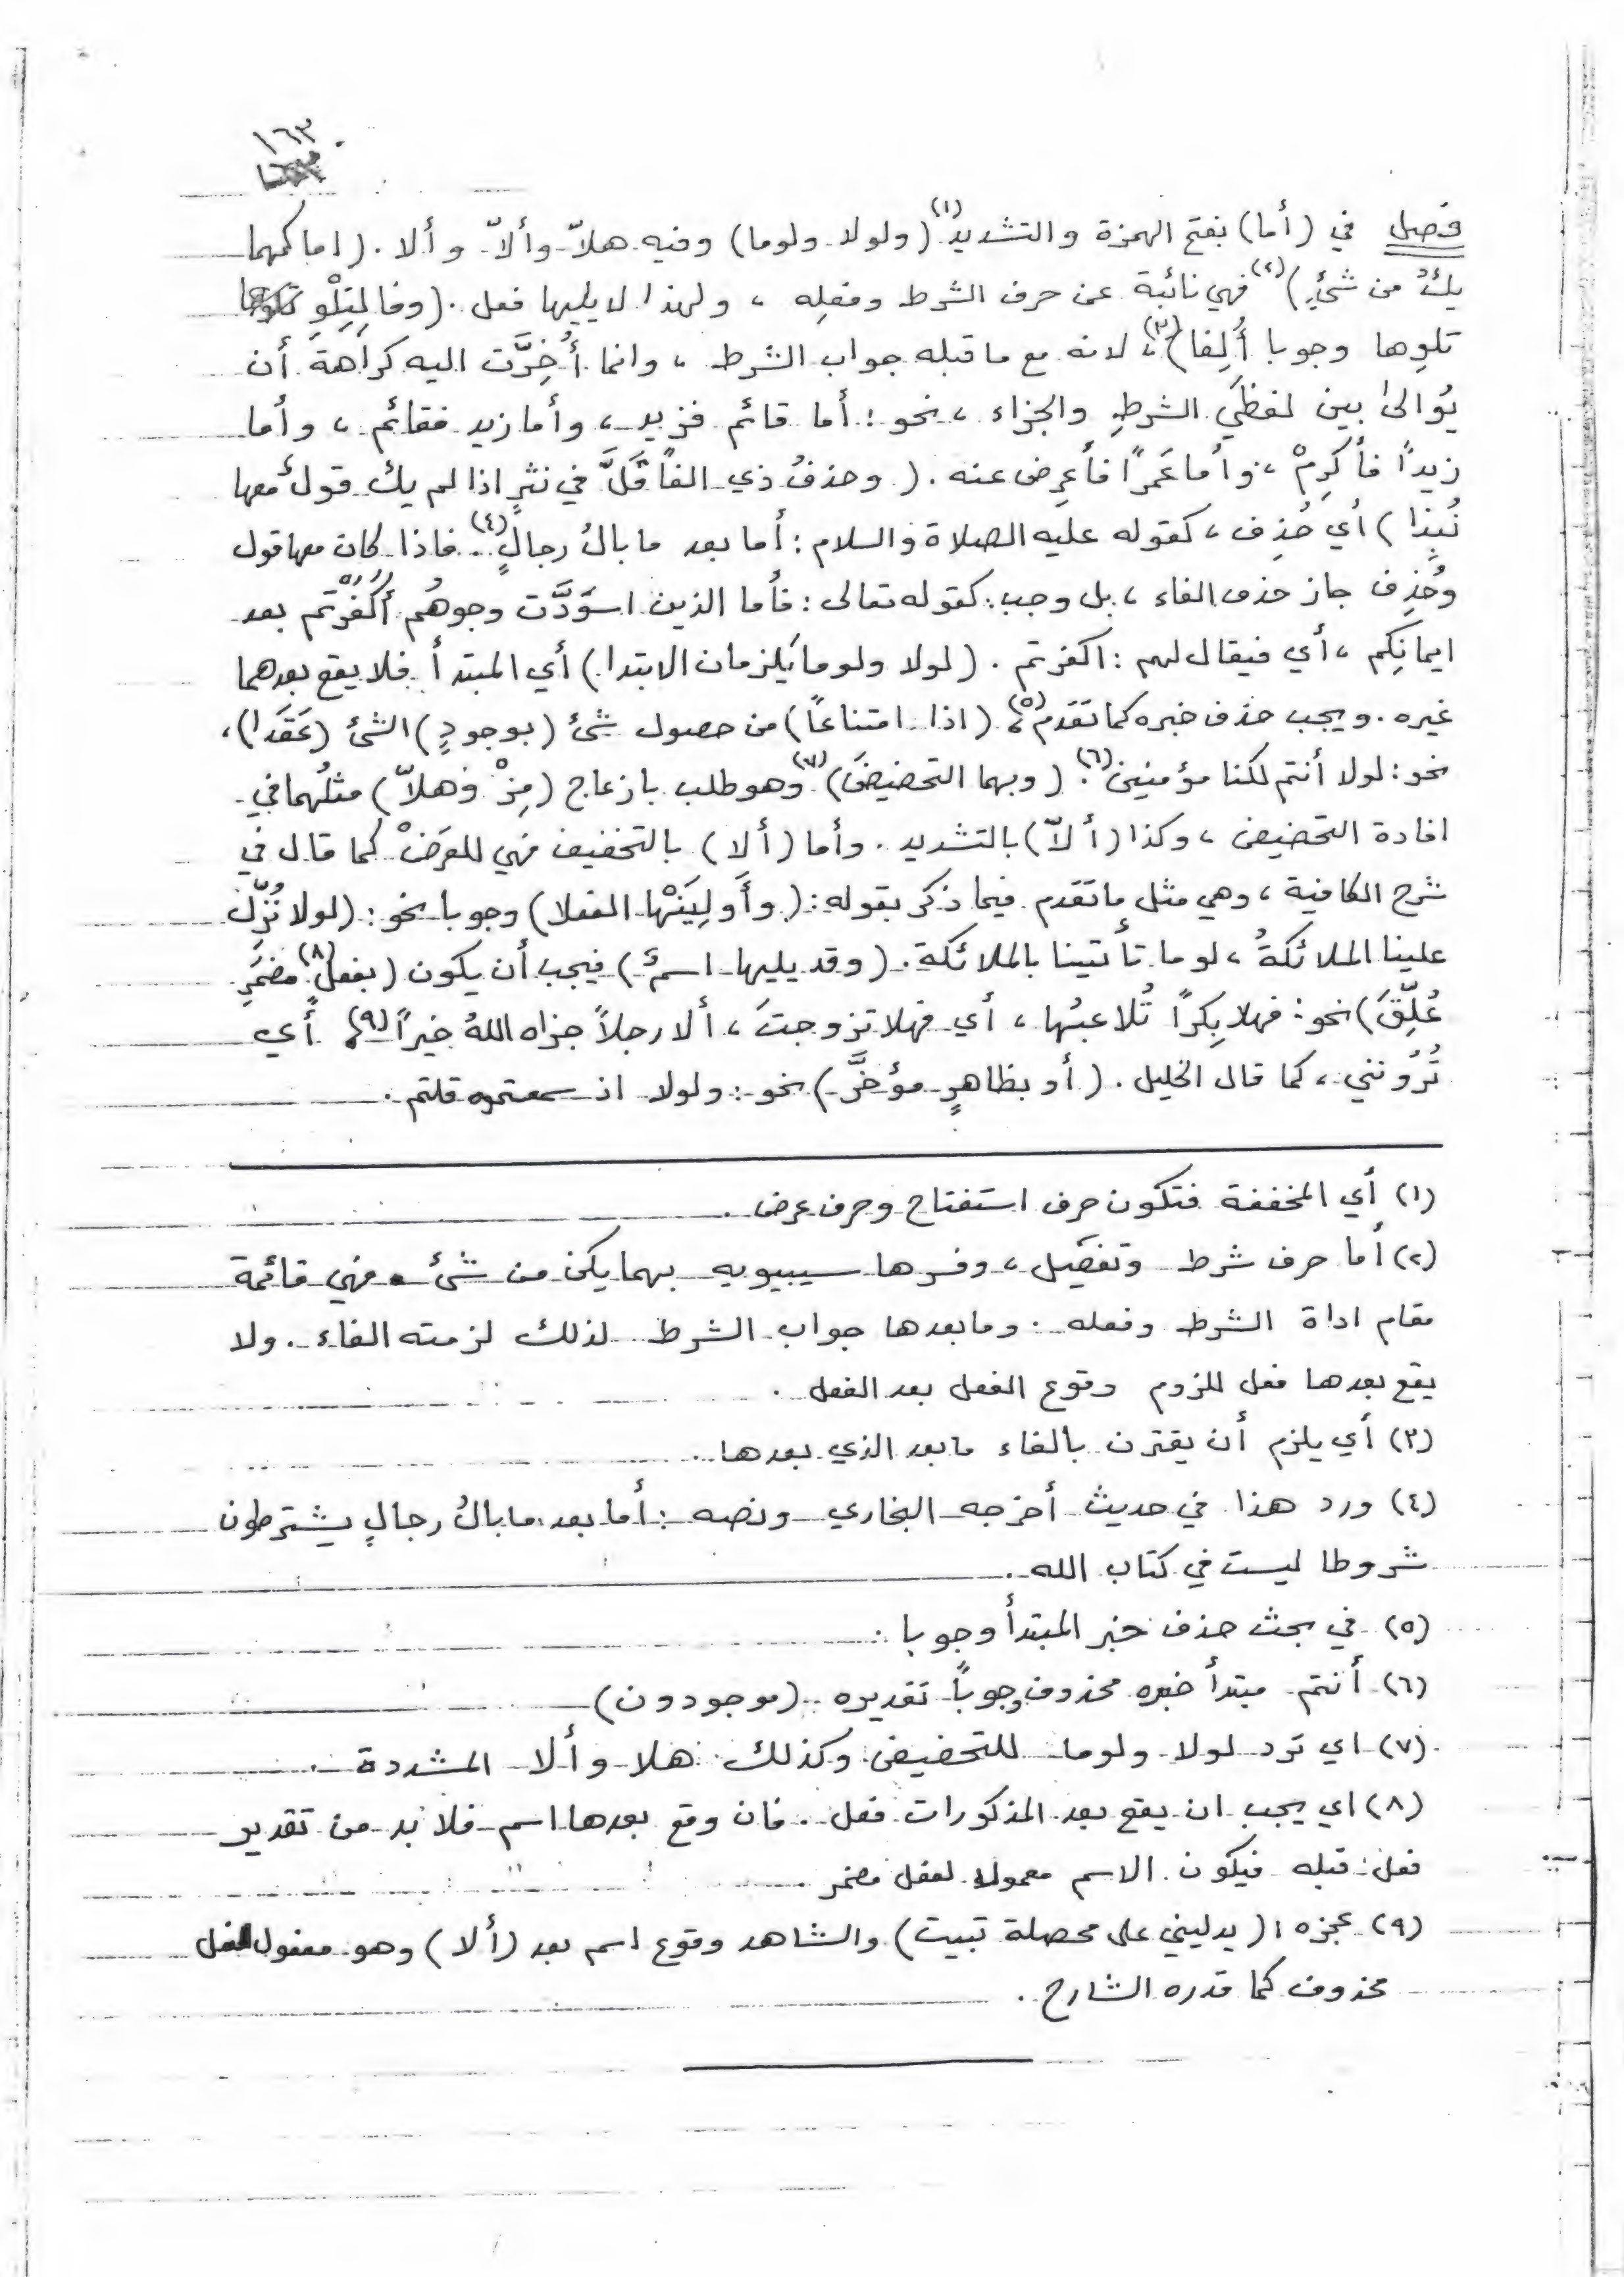 ١٦٣
فصل في (أما) بفتح الهمزة والتشديد(١) (ولولا ولوما) وفيه هلاّ وألاّ وألا . (اما كمهما
يكُ من شئٍ)(٢) فهي نائبة عن حرف الشرط وفعلِه ، ولهذا لا يليها فعل . (وفا لِتِلْوِ
تلوِها وجوبا أُلِفا)(٣) ، لانه مع ما قبله جواب الشرط ، وانما أُخِرَّت اليه كراهةَ أن
يُوالىٰ بين لفظَي الشرطِ والجزاء ، نحو : أما قائم فزيد ، وأما زيد فقائم ، وأما
زيداً فأكرِمْ ، وأما عَمرًا فأعرِض عنه . (وحذفُ ذي الفا قَلَّ في نثرٍ اذا لم يك قولٌ معها
نُبِذا) أي حُذِف ، كقوله عليه الصلاة والسلام : أما بعد ما بالُ رجالٍ(٤) .. فاذا كان معها قول
وحُذِف جاز حذف الفاء ، بل وجب : كقوله تعالى : فأما الذين اسوَدَّت وجوهُهُم أكفَرْتم بعد
ايمانِكم ، أي فيقال لهم : اكفرتم . (لولا ولوما يَلزمان الابتدا) أي المبتدأ فلا يقع بعدهما
غيره . ويجب حذف خبره كما تَقدم(٥) ، (اذا امتناعًا) من حصول شئ (بوجودٍ) الشئ (عَقَدا) ،
نحو : لولا أنتم لكنا مؤمنين(٦) . (وبهما التحضيضَ)(٧) وهو طلب بازعاج (مِزْ وَهلاّ) مثلُهما في
افادة التحضيض ، وكذا (ألاّ) بالتشديد . وأما (ألا) بالتخفيف فهي للعَرَضْ كما قال في
شرح الكافية ، وهي مثل ما تَقدم فيما ذكر بقوله : (وأَولِيَنْها الفعلا) وجوبا نحو : (لولا نُزِّل
علينا الملائكةُ ، لوما تأتينا بالملائكة . (وقد يليها اسمٌ) فيجب أن يكون (بفعلٍ(٨) مضمَرِ
عُلِّقَ) نحو : فهلا بِكرًا تُلاعبُها ، أي فهلا تزوجتَ ، ألا رجلاً جزاه اللهُ خيراً(٩) أي
تُرُونني ، كما قال الخليل . (أو بظاهرٍ مؤخَّر) نحو : ولولا اذ سمعتموه قلتم .
(١) أي المخففة فتكون حرف استفتاح وحرف عرض .
(٢) أما حرف شرط وتفصيل ، وفسرها سيبيويه بهما يكن من شئ . فهي قائمة
مقام اداة الشرط وفعله . وما بعدها جواب الشرط لذلك لزمته الفاء . ولا
يقع بعدها فعل للزوم وقوع الفعل بعد الفعل .
(٣) أي يلزم أن يقترن بالفاء ما بعد الذي بعدها .
(٤) ورد هذا في حديث أخرجه البخاري ونصه : أما بعد ما بالُ رجالٍ يشترطون
شروطا ليست في كتاب الله .
(٥) في بحث حذف خبر المبتدأ وجوبا .
(٦) أنتم مبتدأ خبره محذوف وجوباً تقديره (موجودون)
(٧) اي تَرد لولا ولوما للتحضيض وكذلك هلا وألا المشددة .
(٨) اي يجب ان يقع بعد المذكورات فعل . فان وقع بعدها اسم فلا بد من تقدير
فعل قبله فيكون الاسم معمولا لفعل مضمر .
(٩) عجزه : (يدليني على محصلة تبيت) والشاهد وقوع اسم بعد (ألا) وهو مفعول لفعل
محذوف كما قدره الشارح .